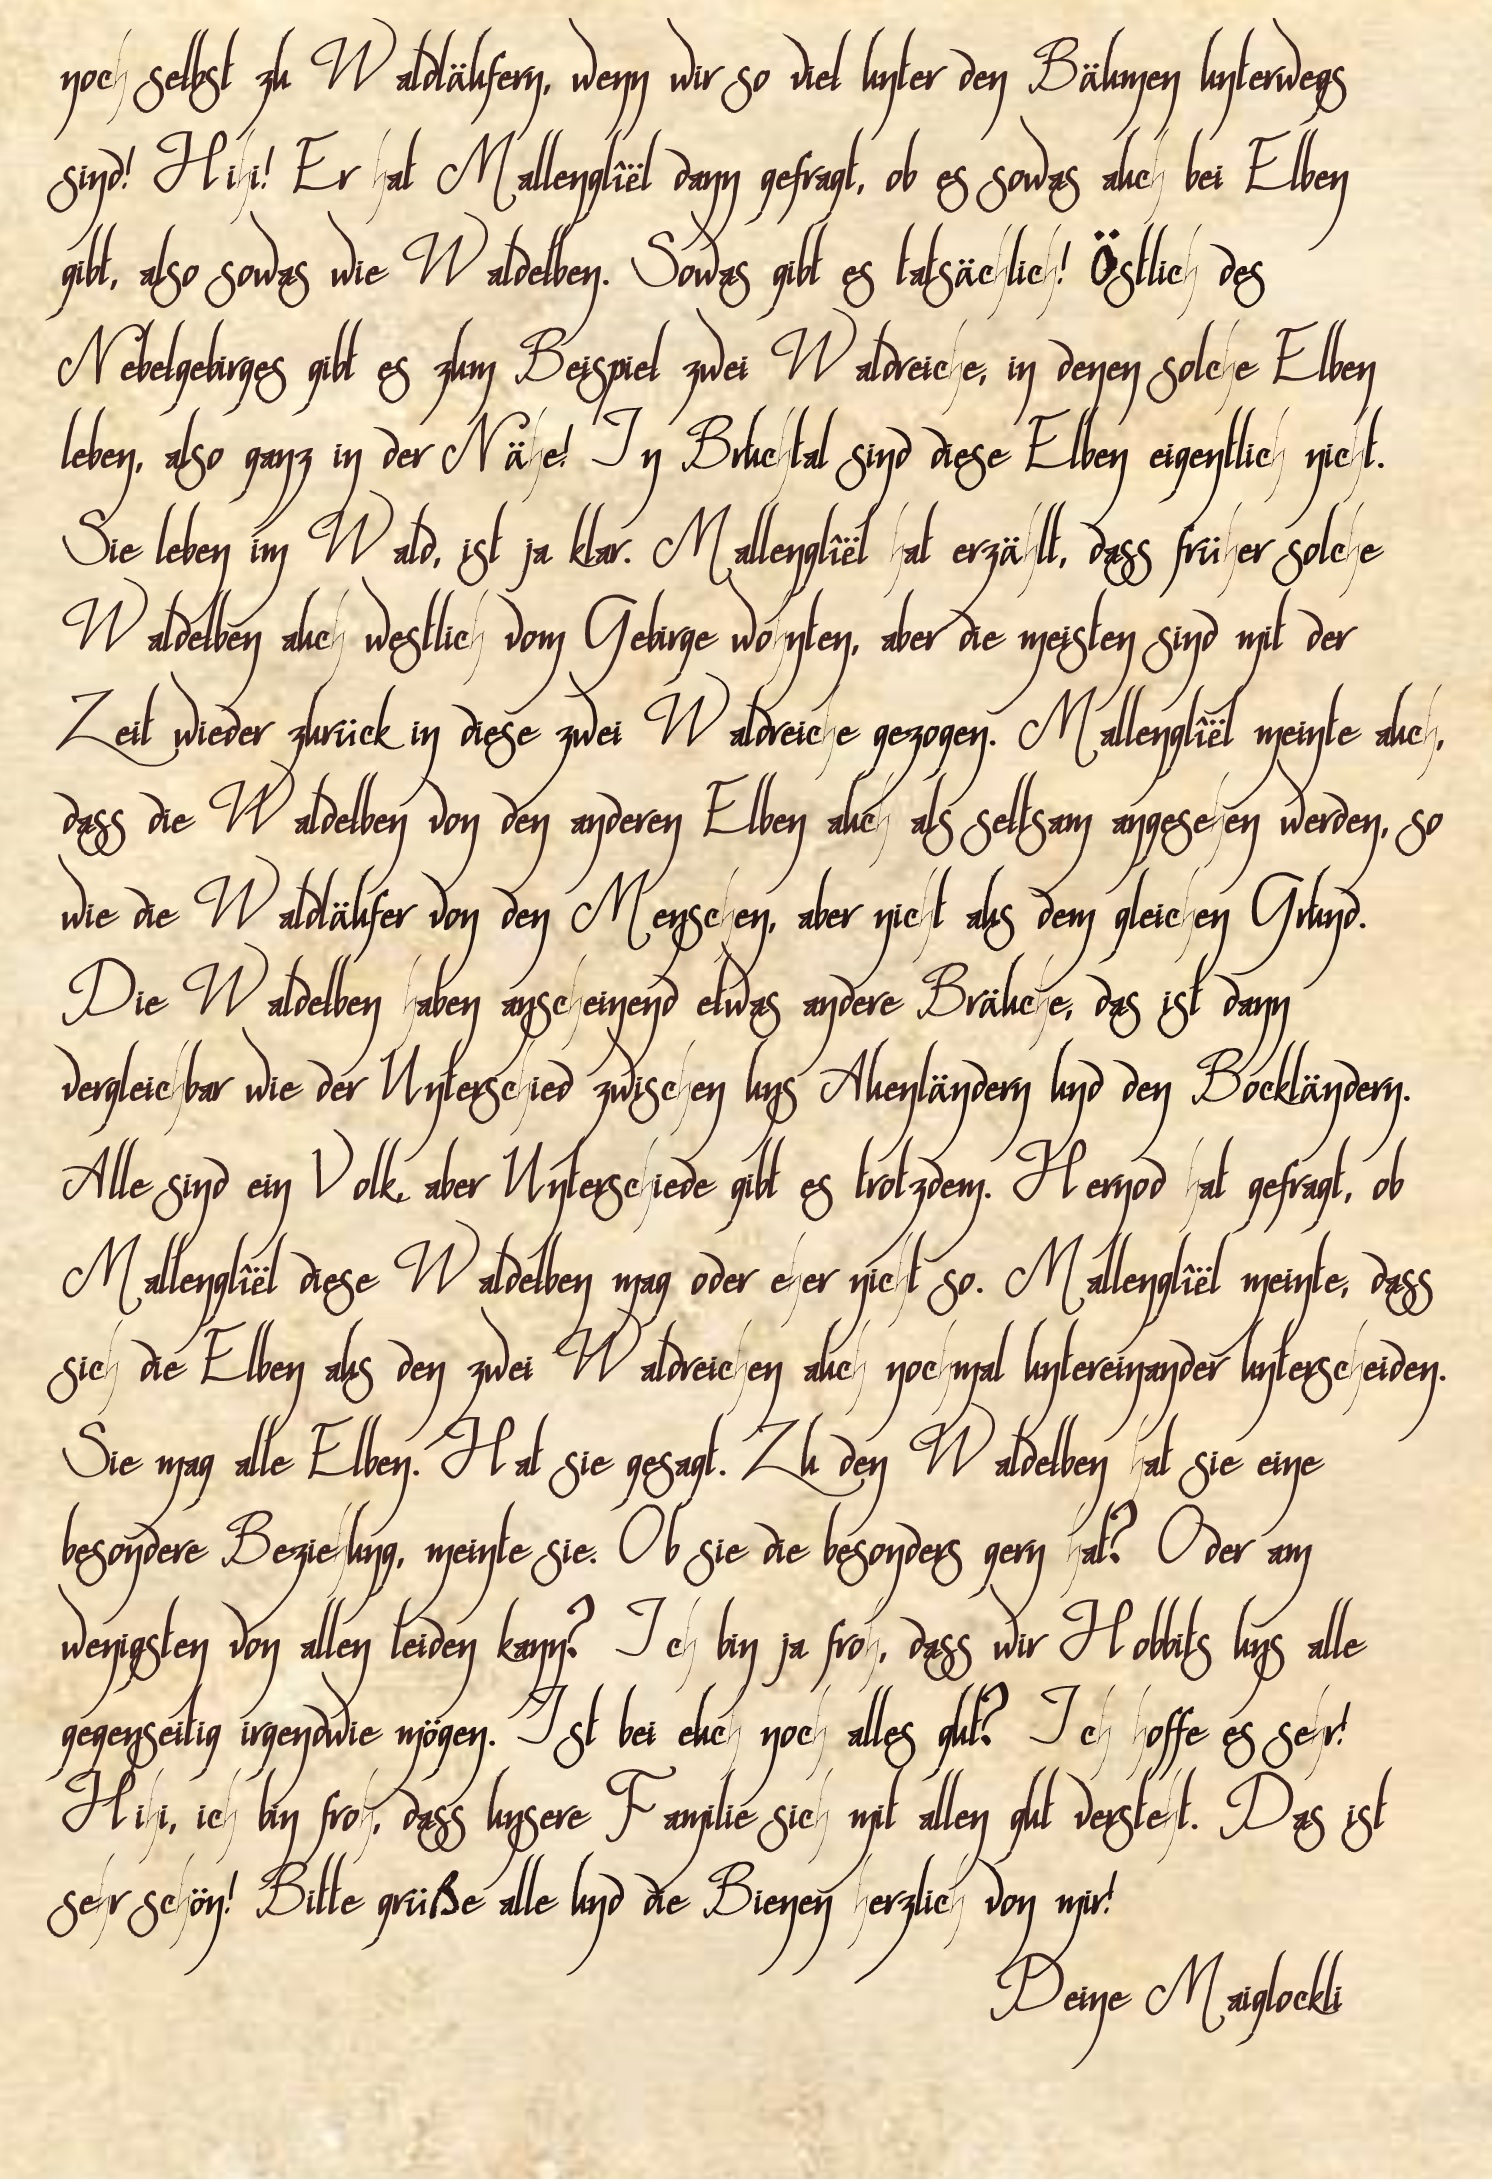 noch selbst zu Waldläufern, wenn wir so viel unter den Bäumen unterwegs
sind! Hihi! Er hat Mallenglîël dann gefragt, ob es sowas auch bei Elben
gibt, also sowas wie Waldelben. Sowas gibt es tatsächlich! Östlich des
Nebelgebirges gibt es zum Beispiel zwei Waldreiche, in denen solche Elben
leben, also ganz in der Nähe! In Bruchtal sind diese Elben eigentlich nicht.
Sie leben im Wald, ist ja klar. Mallenglîël hat erzählt, dass früher solche
Waldelben auch westlich vom Gebirge wohnten, aber die meisten sind mit der
Zeit wieder zurück in diese zwei Waldreiche gezogen. Mallenglîël meinte auch,
dass die Waldelben von den anderen Elben auch als seltsam angesehen werden, so
wie die Waldläufer von den Menschen, aber nicht aus dem gleichen Grund.
Die Waldelben haben anscheinend etwas andere Bräuche, das ist dann
vergleichbar wie der Unterschied zwischen uns Auenländern und den Bockländern.
Alle sind ein Volk, aber Unterschiede gibt es trotzdem. Hernod hat gefragt, ob
Mallenglîël diese Waldelben mag oder eher nicht so. Mallenglîël meinte, dass
sich die Elben aus den zwei Waldreichen auch nochmal untereinander unterscheiden.
Sie mag alle Elben. Hat sie gesagt. Zu den Waldelben hat sie eine
besondere Beziehung, meinte sie. Ob sie die besonders gern hat? Oder am
wenigsten von allen leiden kann? Ich bin ja froh, dass wir Hobbits uns alle
gegenseitig irgendwie mögen. Ist bei euch noch alles gut? Ich hoffe es sehr!
Hihi, ich bin froh, dass unsere Familie sich mit allen gut versteht. Das ist
sehr schön! Bitte grüße alle und die Bienen herzlich von mir!
Deine Maiglockli